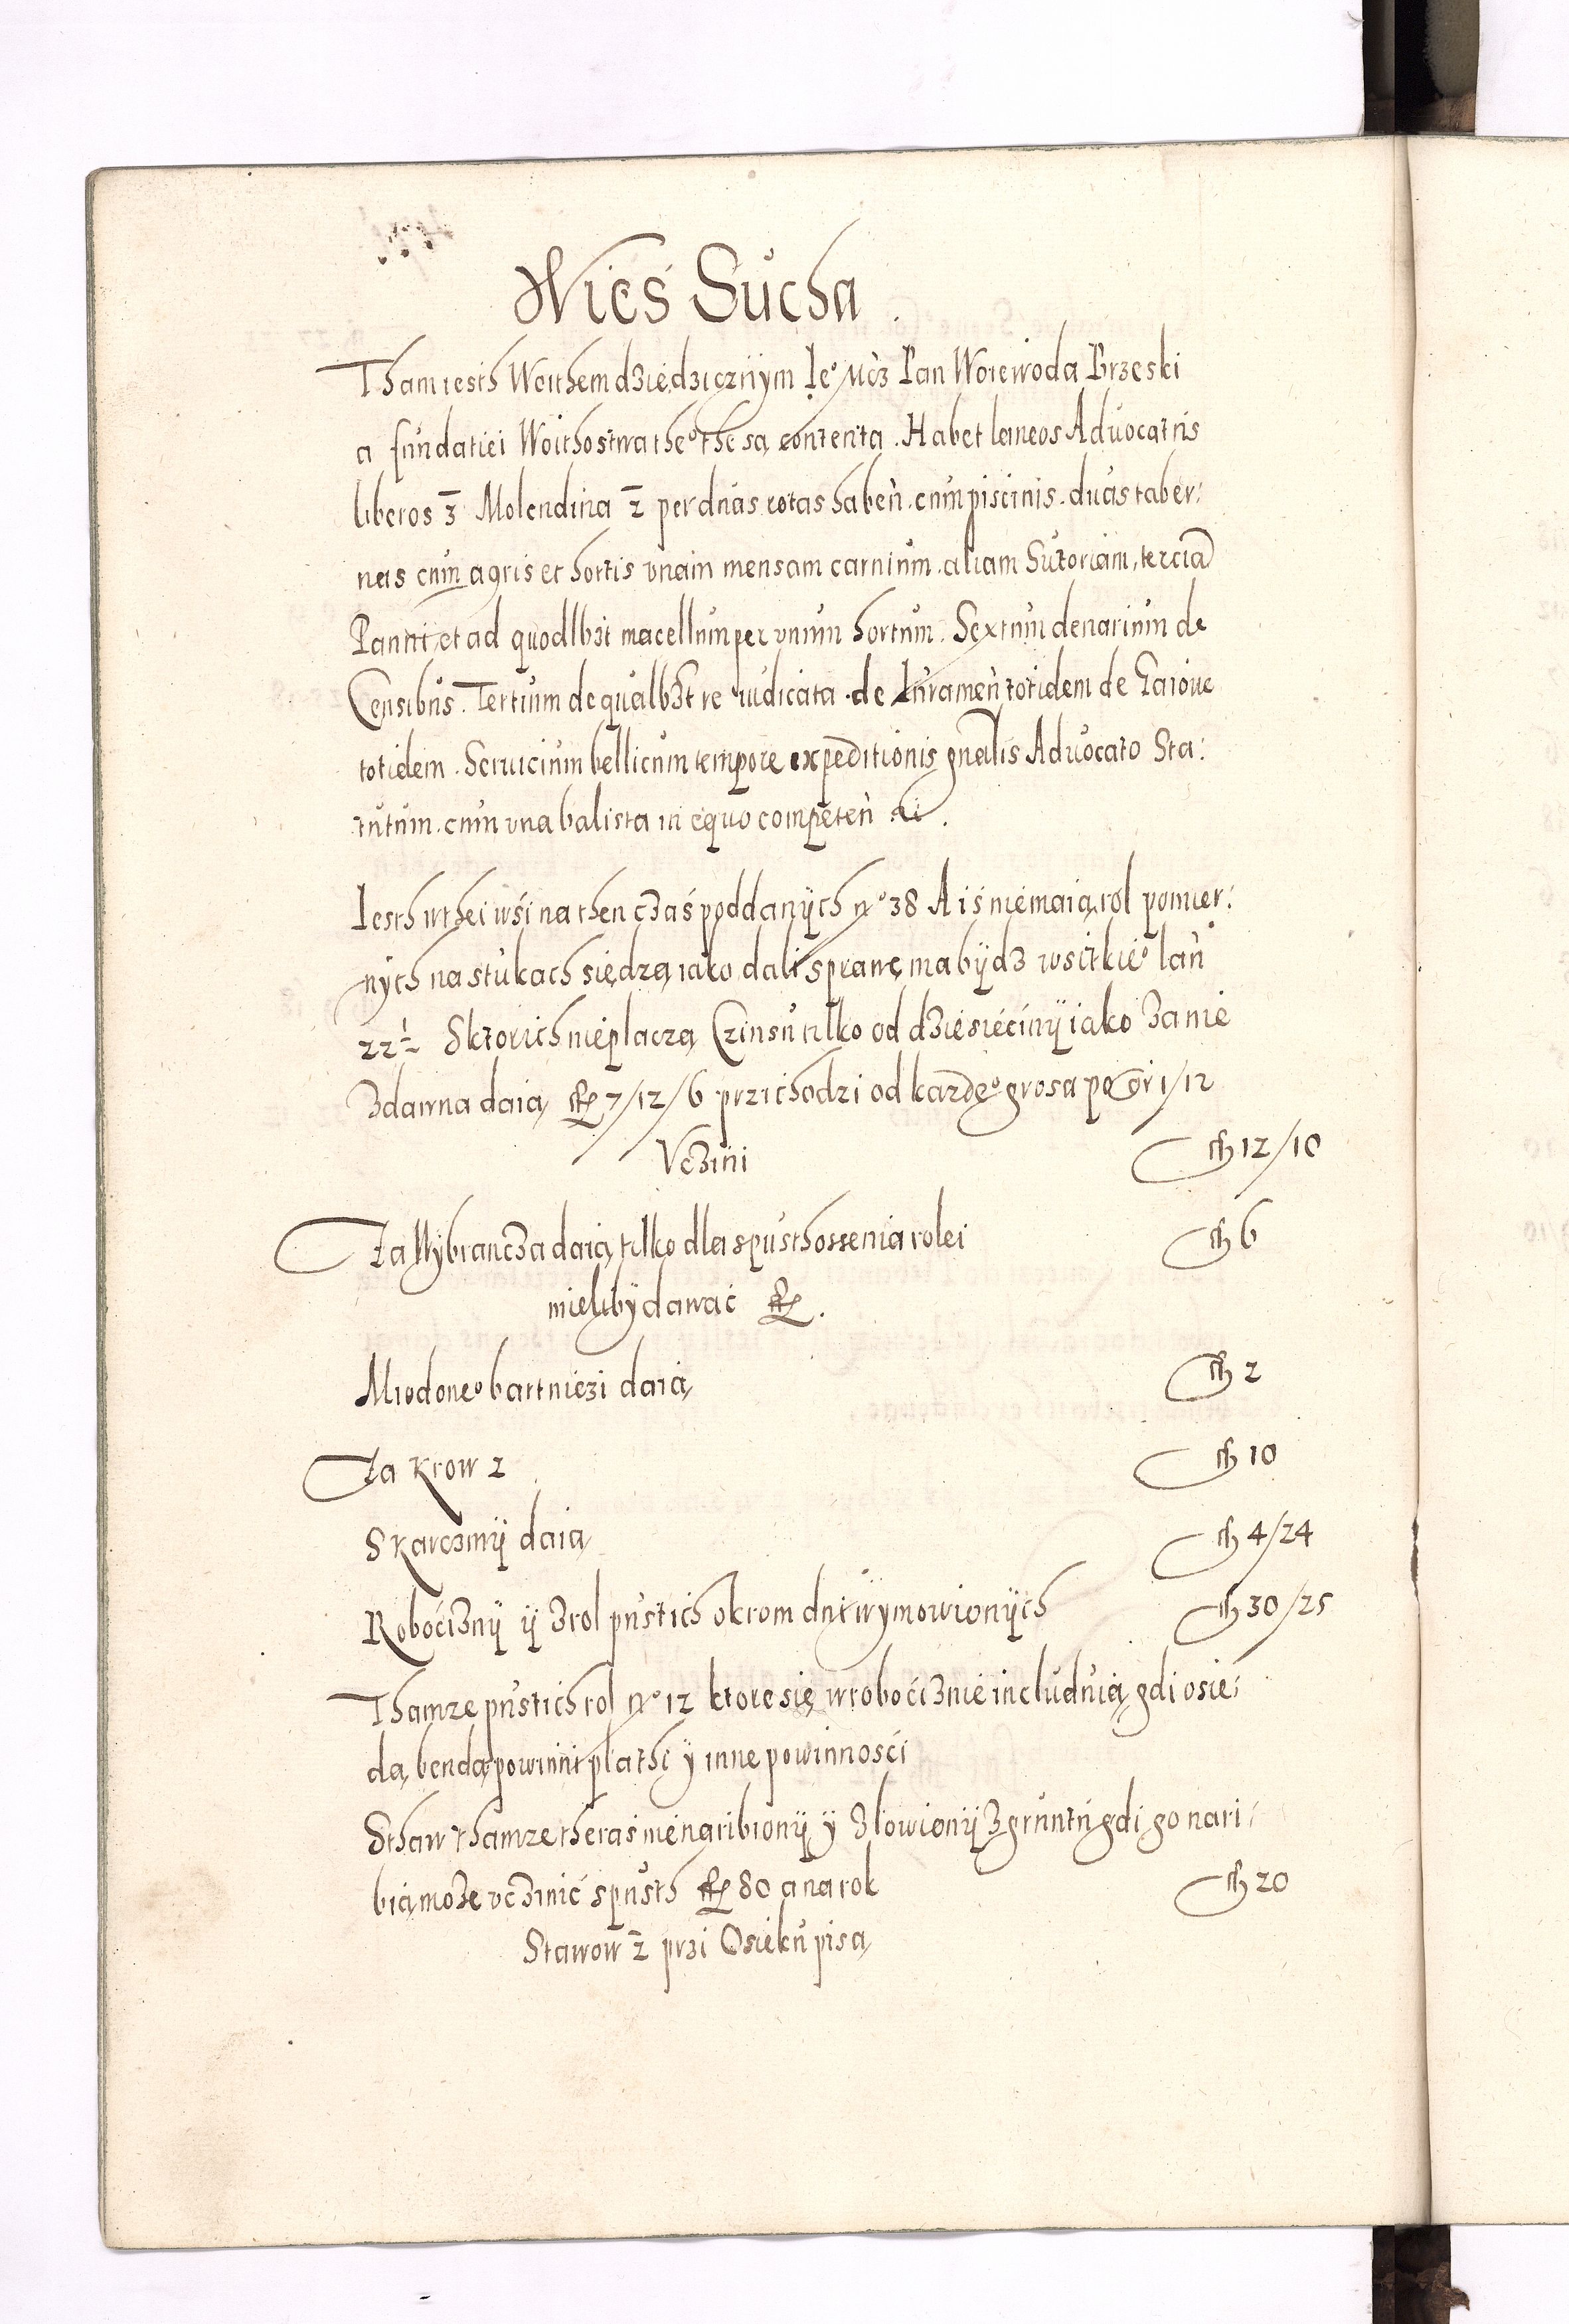 Wieś Sucha.
Tham iesth Woithem dziedzicznÿm Ie° Mcz Pan Woiewoda Brzeski
a fundatiei Woithostwa the° the są contenta. Habet laneos Advocatus
liberos 3 Molendina 2 per duas rotas haben. cum piscinis. duas taber:
nas cum agris et hortis vnam mensam carnium. aliam Sutoriam, terciā
Panni, et ad quodlbzt macellum per vnum hortum. Sextum denarium de
Censibus. Tertium de qualbzt re iudicata. de Iuramen totidem de Gaioue
totidem. Seruicium bellicum tempore expeditionis gnalis Advocato Sta:
tutum. cum vna balista in equo competen
Iesth wthei wśi na then czaś poddanÿch n° 38 A iś nie maią rol pomier:
nÿch na stukach siędzą, iako dali sprawę ma bÿdz wsitkie° lan
22½ Sktorich nie placzą Czinsu tilko od dziesiecinÿ iako za nie
zdawna daią fl 7/12/6 przichodzi od kazde° grosa po gr 1/12
Vczini fl 12/10
Za Wÿbrancza daią tilko dla spusthossenia rolei fl 6
mielibÿ dawać fl.
Miodowe° bartniczi daią fl 2
Za krow 2 fl 10
S karczmÿ daią fl 4/24
Roboćiznÿ ÿ z rol pustich okrom dni wÿmowionÿch fl 30/25
Thamze pustich rol n° 12 ktore się w roboćiznie includuią, gdi osię:
dą, bendą powinni plathi ÿ inne powinnosći
Sthaw thamze theras nie naribionÿ ÿ zlowionÿ z gruntu gdi go nari:
bią, moze vczinić spusth fl 80 a na rok fl 20
Stawow 2 przi Osieku pisą